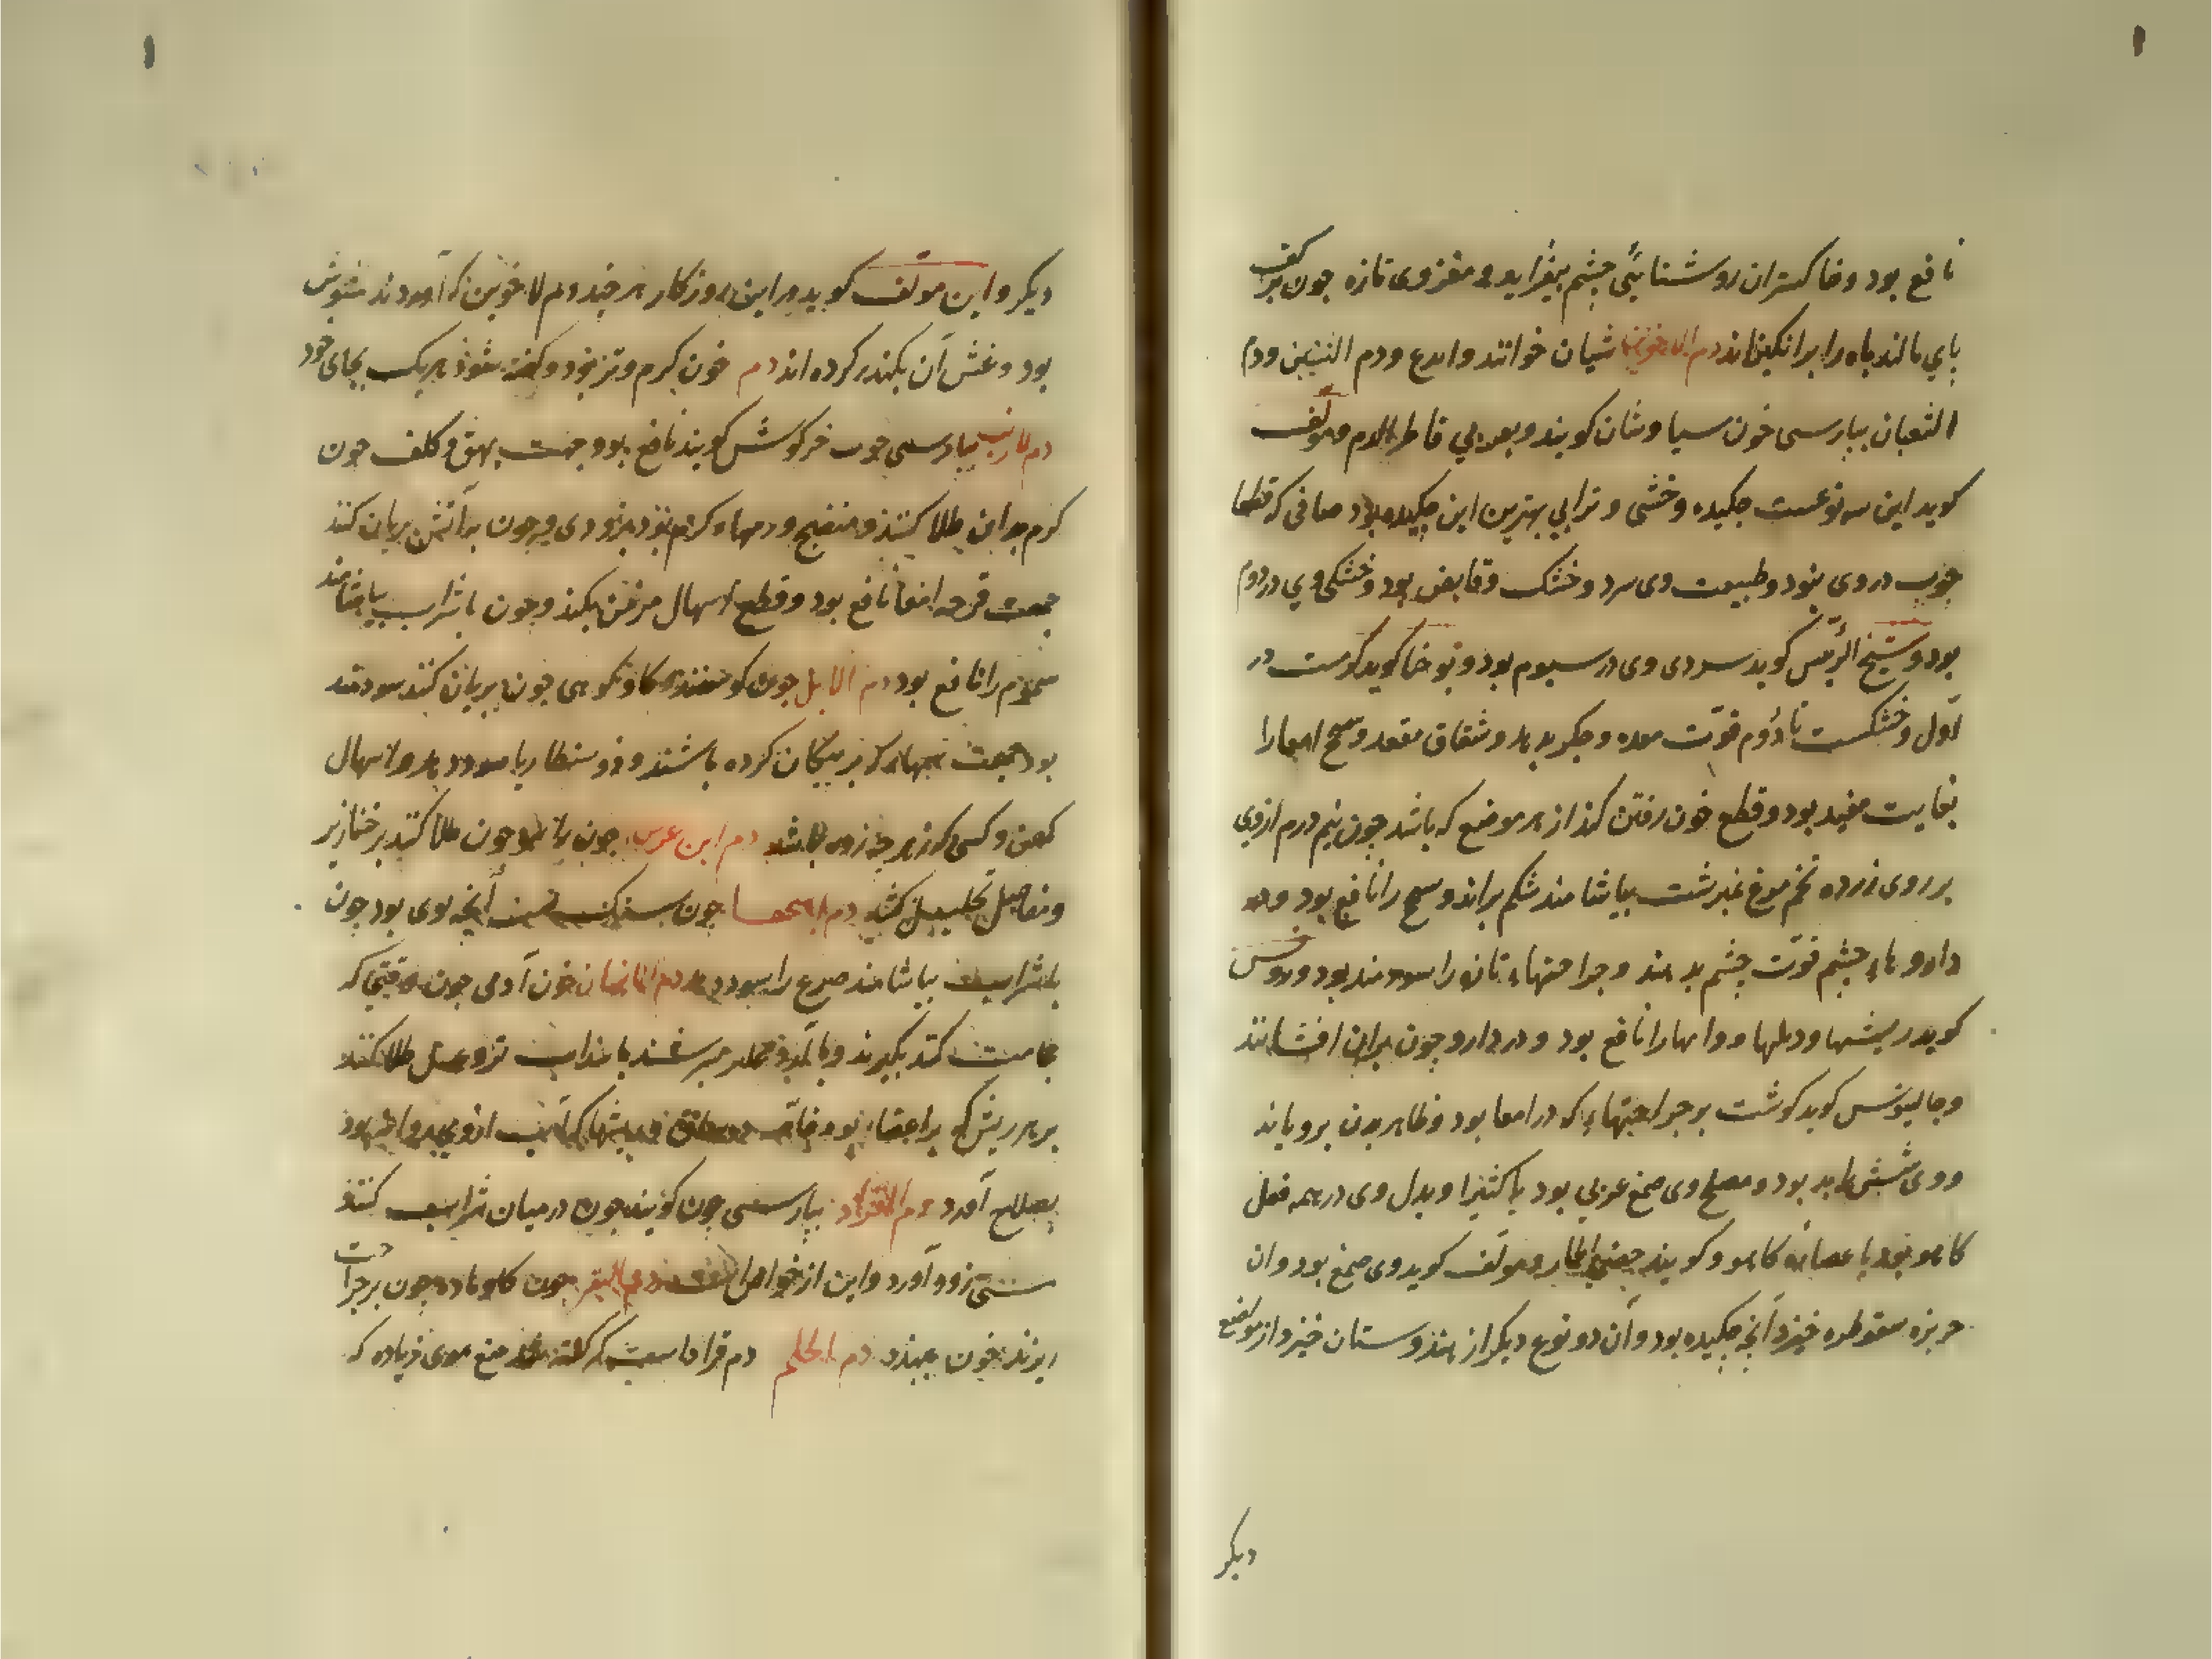 نافع بود و خاکستران روشنائی چشم بیفزاید و مغز وی تازه چون بر کف
پای مالند باه را برانکیزاند دم الاخوین شیان خوانند و ایدع و دم التنین و دم
الثعبان بپارسی خون سیاوشان کویند و بعربی قاطر الدم و مولف
کوید این سه نوعست چکیده و خشی و ترابی بهترین این چکیده بود صافی که قطعا
چوب در وی نبود و طبیعت وی سرد و خشک و قابض بود و خشکی وی در دوم
بود و شیخ الرئیس کوید سردی وی در سیوم بود و یوحنا کوید کرمست در
اول و خشکست تا دوم قوت معده و جکر بدهد و شقاق مقعد و سحج امعا را
بغایت مفید بود و قطع خون رفتن کند از هر موضع که باشد چون نیم درم از وی
بر روی زرده تخم مرغ نیمبرشت بیاشامند شکم براند و سحج را نافع بود و در
داروهاء چشم قوت چشم بدهد و جراحتهاء تازه را سودمند بود و روفس
کوید ریشها و دملها و دانها را نافع بود و در دارو چون بران افشانند
و جالینوس کوید کوشت بر جراحتهاء که در امعا بود و ظاهر بدن برویاند
و وی شش را بد بود و مصلح وی صمغ عربی بود یا کثیرا و بدل وی در همه فعل
کاهو بود یا عصاره کاهو و کویند و مولف کوید وی صمغ بود و ان
جزیره سقوطره خیزد آنچه چکیده بود و آن دو نوع دیکر از هندوستان خیزد از موضع
دیکر
دیکر و این مولف کوید در این روزکار هر چند دم الاخوین که آوردند مغشوش
بود و غش آن بکندر کرده اند دم خون کرم و تر بود و کفته شود هر یک بجای خود
دم الارنب بپارسی خون خرکوش کویند نافع بود جهت بهق و کلف چون
کرم بر این طلا کنند و منضج ورمهاء کرم بود بزودی و چون بر آتش بریان کنند
جهت قرحه امعا نافع بود و قطع اسهال مزمن بکند و چون با شراب بیاشامند
سموم را نافع بود دم الایل خون کوسفند و کاو کوهی چون بریان کنند سودمند
بود جهت که بر پیکان کرده باشند و ذوسنطاریا سود دهد و اسهال
کهن و کسی که زهر خورده باشد دم ابن عرس خون چون طلا کنند بر خنازیر
و مفاصل تحلیل کند دم خون آنچه بوی بود چون
با شراب بیاشامند صرع را سود دهد دم الانسان خون آدمی چون وقتی که
حجامت کنند بکیرند و با سداب تر و عسل طلا کنند
بر هر ریش که بر اعضا بود
بصلاح آورد دم القراد بپارسی خون کویند چون در میان شراب کنند
مستی زود آورد و این از خواص دم البقر خون کاو ماده چون بر جراحت
ریزند خون ببندد دم الحلم دم قراد است که کفته شد منع موی زیاده که